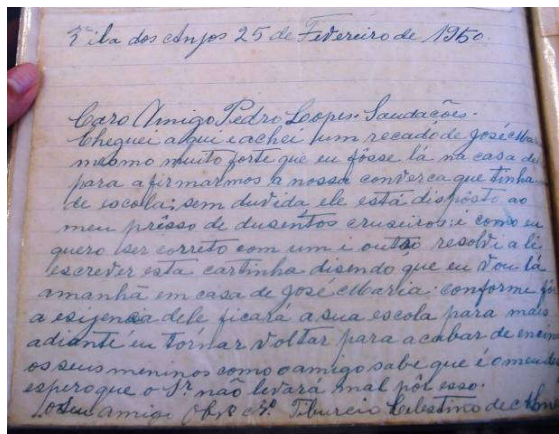 Vila dos Anjos 25 de Fevereiro de 1950.
Caro Amigo Pedro Lopes. Saudações.
Cheguei aqui e achei um recado de José Maria
mesmo muito forte que eu fôsse lá na casa de
para afirmarmos a nossa converca que tinha
de escola; sem duvida ele está dispôsto ao
meu prêsso de dusentos cruseiros: i como eu
quero ser correto com um i outro resolvi a li
escrever esta cartinha disendo que eu vou lá
amanhã em casa de José Maria: conforme fô
a esigencia dele ficará a sua escola para mais
adiante eu tornar voltar para acabar de ensin
os seus meninos como o amigo sabe que é o meu
espero que o Sr. não levará mal pôr esso.
do seu amigo Tiburcio Celestino de